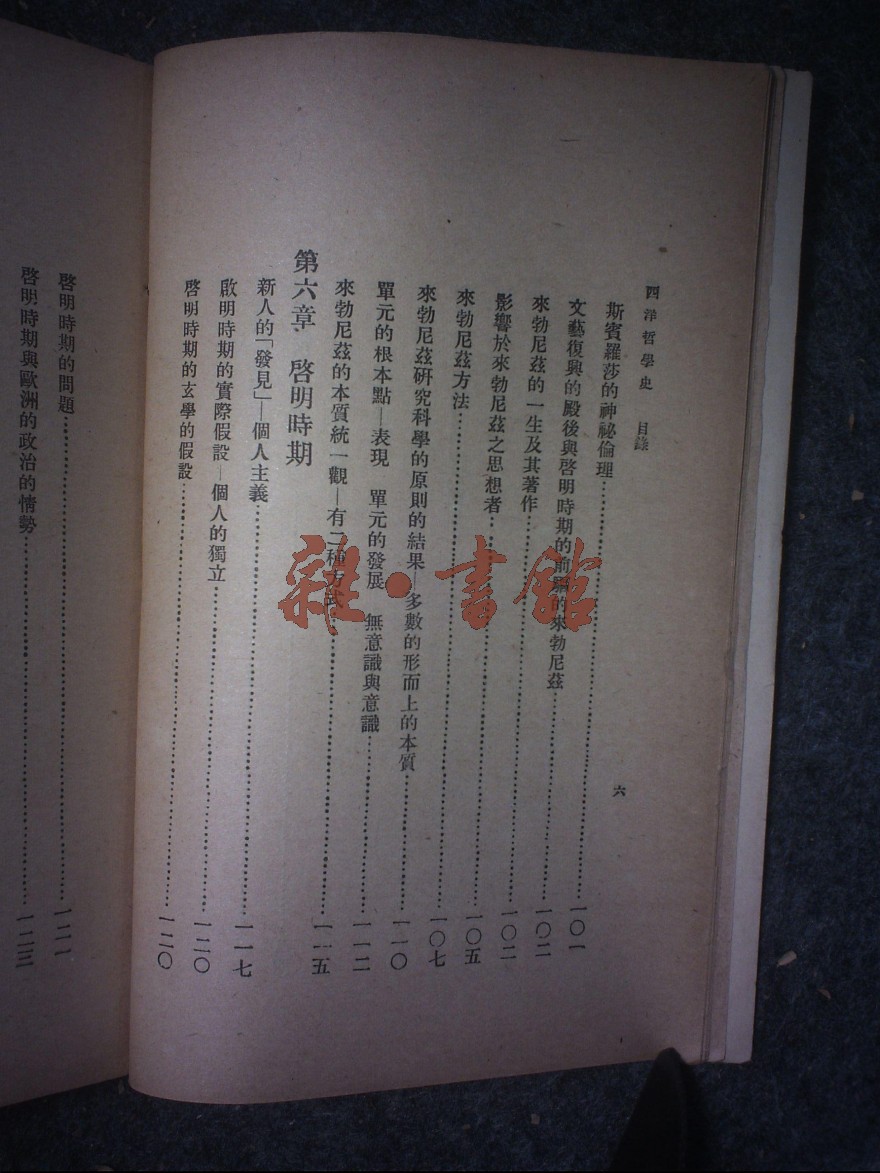 西洋哲學史 目錄 六
斯賓羅莎的神祕倫理……一〇一
文藝復興的殿後與啓明時期的前驅的來勃尼茲……一〇二
來勃尼茲的一生及其著作……一〇二
影響於來勃尼茲之思想者……一〇五
來勃尼茲方法……一〇七
來勃尼茲研究科學的原則的結果—多數的形而上的本質……一一〇
單元的根本點—表現 單元的發展 無意識與意識……一一二
來勃尼茲的本質統一觀—有二種方式……一一五
第六章 啓明時期
新人的「發見」—個人主義……一一七
啟明時期的實際假設—個人的獨立……一二〇
啓明時期的玄學的假設……一二〇
啓明時期的問題……一二一
啓明時期與歐洲的政治的情勢……一二三
雜·書館